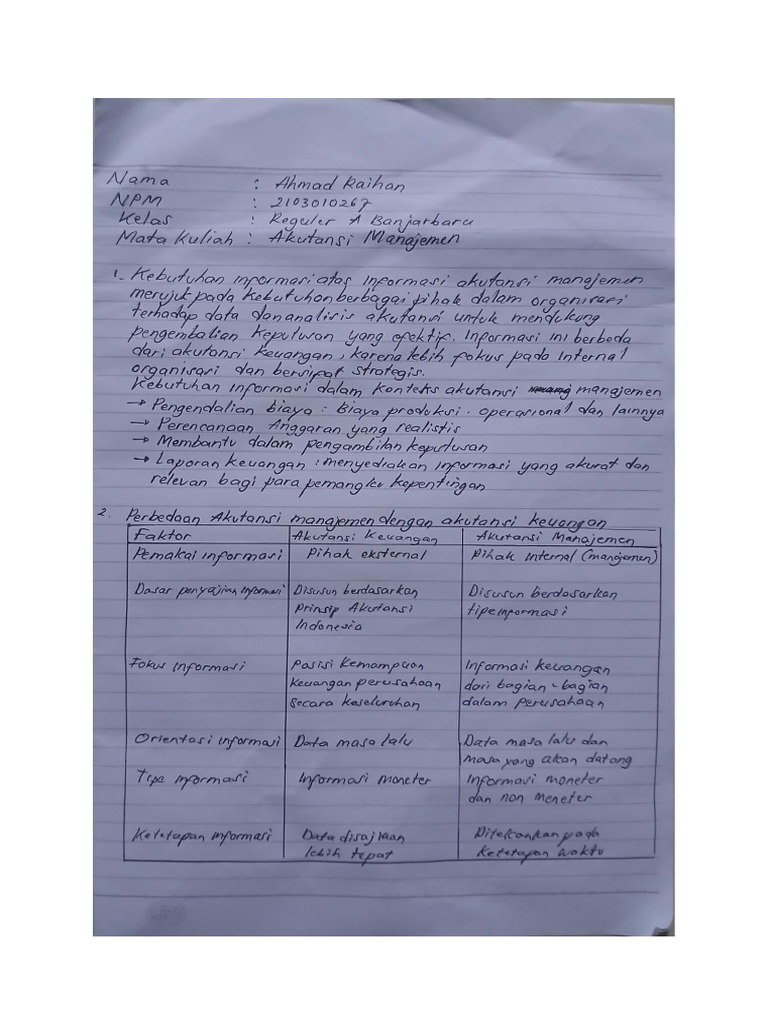 Nama : Ahmad Raihan
NPM : 2103010267
Kelas : Reguler A Banjarbaru
Mata Kuliah : Akutansi Manajemen
1. Kebutuhan informasi atas informasi akutansi manajemen
merujuk pada kebutuhan berbagai pihak dalam organisasi
terhadap data dan analisis akutansi untuk mendukung
pengembalian keputusan yang efektif. Informasi ini berbeda
dari akutansi keuangan, karena lebih fokus pada internal
organisasi dan bersipat strategis.
Kebutuhan informasi dalam konteks akutansi manajemen
→ Pengendalian biaya : Biaya produksi. operasional dan lainnya
→ Perencanaan Anggaran yang realistis
→ Membantu dalam pengambilan keputusan
→ Laporan keuangan : menyediakan informasi yang akurat dan
relevan bagi para pemangku kepentingan
2. Perbedaan Akutansi manajemen dengan akutansi keuangan
Faktor Akutansi Keuangan Akutansi Manajemen
Pemakai informasi Pihak eksternal Pihak Internal (manajemen)
Dasar penyajian informasi Disusun berdasarkan Disusun berdasarkan
Prinsip Akutansi tipe informasi
Indonesia
Fokus informasi Posisi Kemampuan Informasi keuangan
keuangan perusahaan dari bagian-bagian
secara keseluruhan dalam perusahaan
Orientasi informasi Data masa lalu Data masa lalu dan
masa yang akan datang
Tipe informasi Informasi moneter Informasi moneter
dan non meneter
Ketetapan informasi Data disajikan Ditekankan pada
lebih tepat Ketetapan waktu